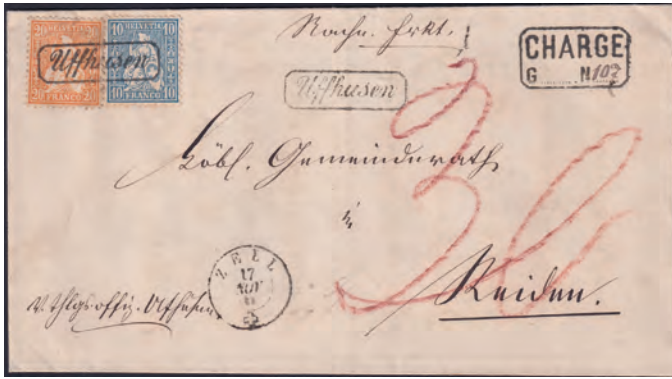 20 HELVETIA 20
20 FRANCO 20
10 HELVETIA 10
10 FRANCO 10
Uffhusen
Nachn. Frkt.
CHARGE
G N 107
Uffhusen
Löbl. Gemeindrath
in
Reiden.
ZELL
17
NOV
Uffhusen
30